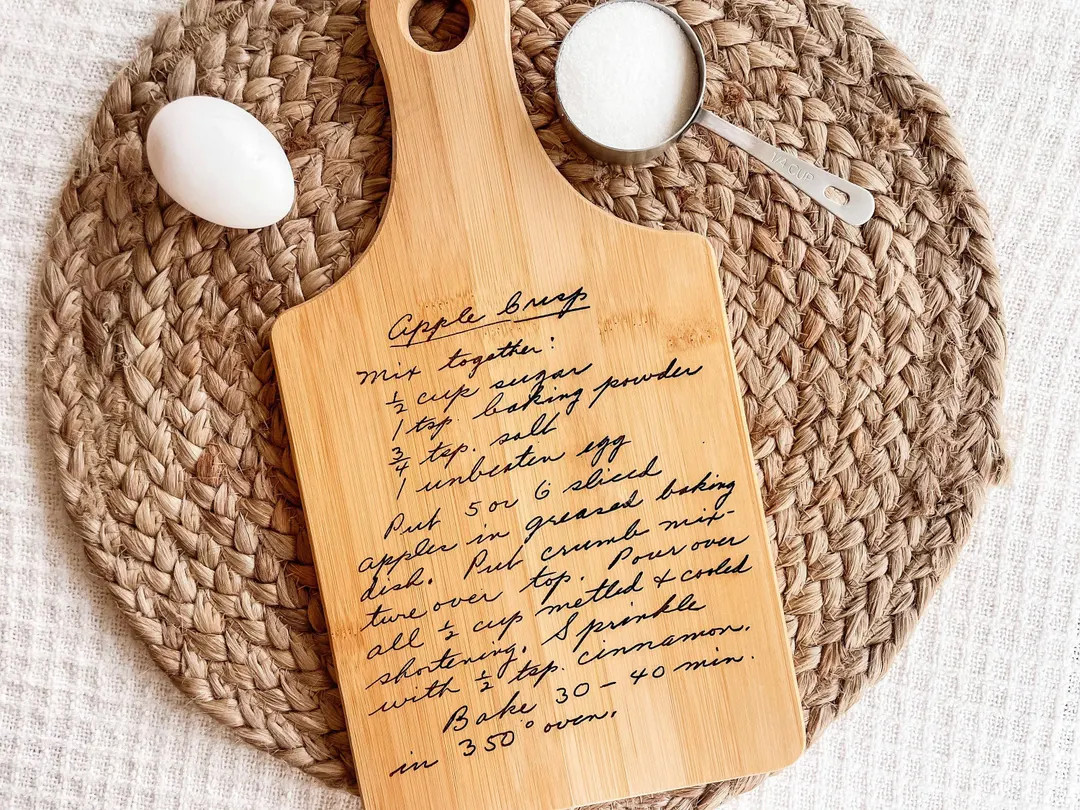 Apple Crisp
Mix together:
½ cup sugar
1 tsp. baking powder
¾ tsp. salt
1 unbeaten egg
Put 5 or 6 sliced
apples in greased baking
dish. Put crumb mix-
ture over top. Pour over
all ½ cup melted & cooled
shortening. Sprinkle
with ½ tsp. cinnamon.
Bake 30 - 40 min.
in 350° oven.
1/4 CUP